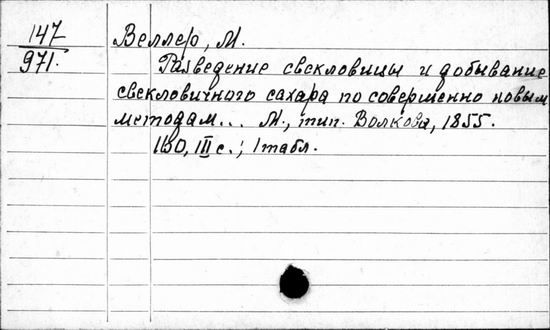 147
971.
Веллер, М.
Разведение свекловицы и добывание
свекловичного сахара по совершенно новым
методам... М., тип. Волкова, 1855.
III с.; 1 табл.